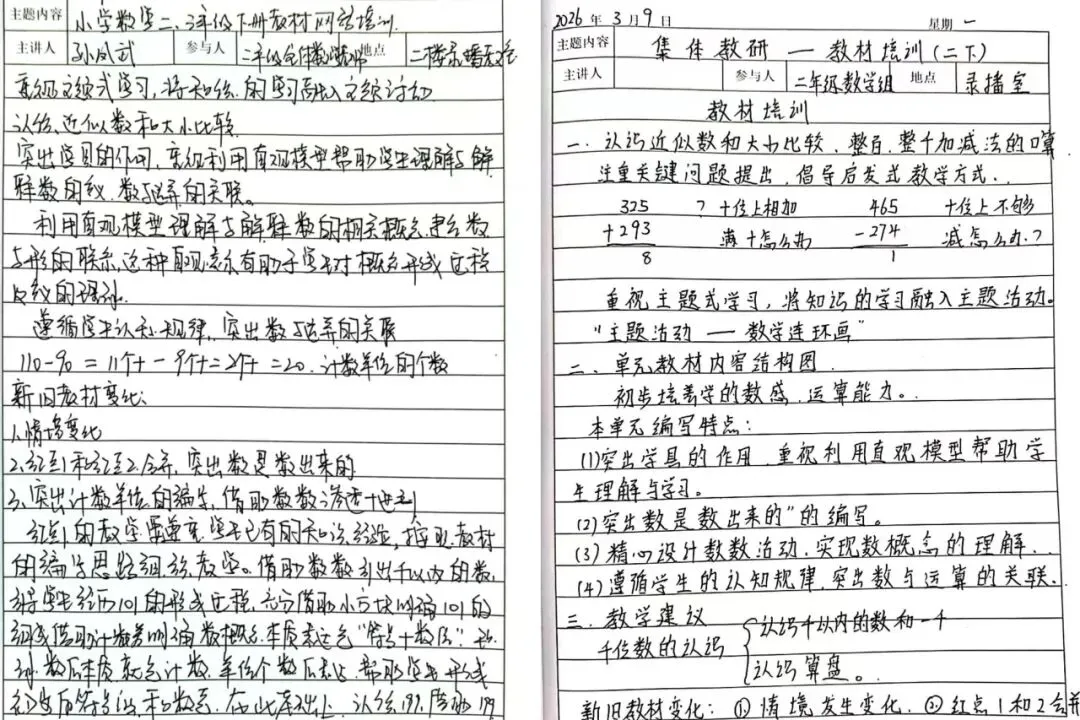 主题内容 小学数学二、三年级下册教材网络培训
主讲人 孙凤武 参与人 二年级全体数学教师 地点 二楼录播教室
重视主题式学习,将知识的学习融入主题活动
认识近似数和大小比较
突出学具的作用,重视利用直观模型帮助学生理解与解
释数的意义、数与运算的关联。
利用直观模型理解与解释数的相关概念,建立数
与形的联系,这种直观表示有助于学生对概念形成过程
及意义的理解
遵循学生认知规律,突出数与运算的关联
110-90=11个十-9个十=2个十=20.计数单位的个数
新旧教材变化:
1、情境变化
2、红点1和红点2合并,突出数是数出来的
3、突出计数单位的编写,借助数数渗透十进制
红点1的教学要尊重学生已有的知识经验,按照教材
的编写思路细致教学。借助数数引出千以内的数,
引导学生经历101的形成过程,充分借助小方块明确101的
组成借助计数器明确数概念本质表达是“符号+数位”
数后本质就是计数单位个数
认识199,借助199
2026年3月9日 星期一
主题内容 集体教研——教材培训(二下)
主讲人 参与人 二年级数学组 地点 录播室
教材培训
一、认识近似数和大小比较、整百、整千加减法的口算
注重关键问题提出,倡导启发式教学方式.
325 ?十位上相加 465 十位上不够
+293 满十怎么办 -274 减怎么办?
8 1
重视主题式学习,将知识的学习融入主题活动。
“主题活动——数学连环画”
二、单元教材内容结构图
初步培养学的数感、运算能力。
本单元编写特点:
(1)突出学具的作用、重视利用直观模型帮助学
生理解与学习。
(2)突出数是数出来的”的编写。
(3)精心设计数数活动,实现数概念的理解.
(4)遵循学生的认知规律,突出数与运算的关联.
三、教学建议
千位数的认识 { 认识千以内的数和一千
认识算盘。
新旧教材变化:①情境发生变化.②红点1和2合并